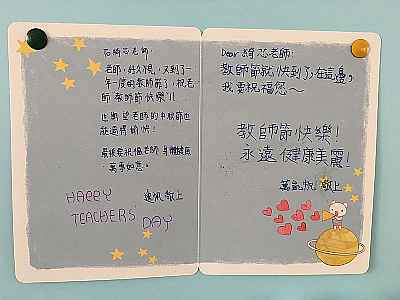 老師,好久不見,又到了一
年一度的教師節了,祝老
師教師節快樂!!
也期望老師的中秋節也
能過得愉快!
最後要祝福老師身體健康
萬事如意。
敬上
HAPPY
TEACHERS
DAY
Dear 綺芯老師:
教師節就快到了,在這邊,
我要祝福您~
教師節快樂!
永遠健康美麗!
敬上